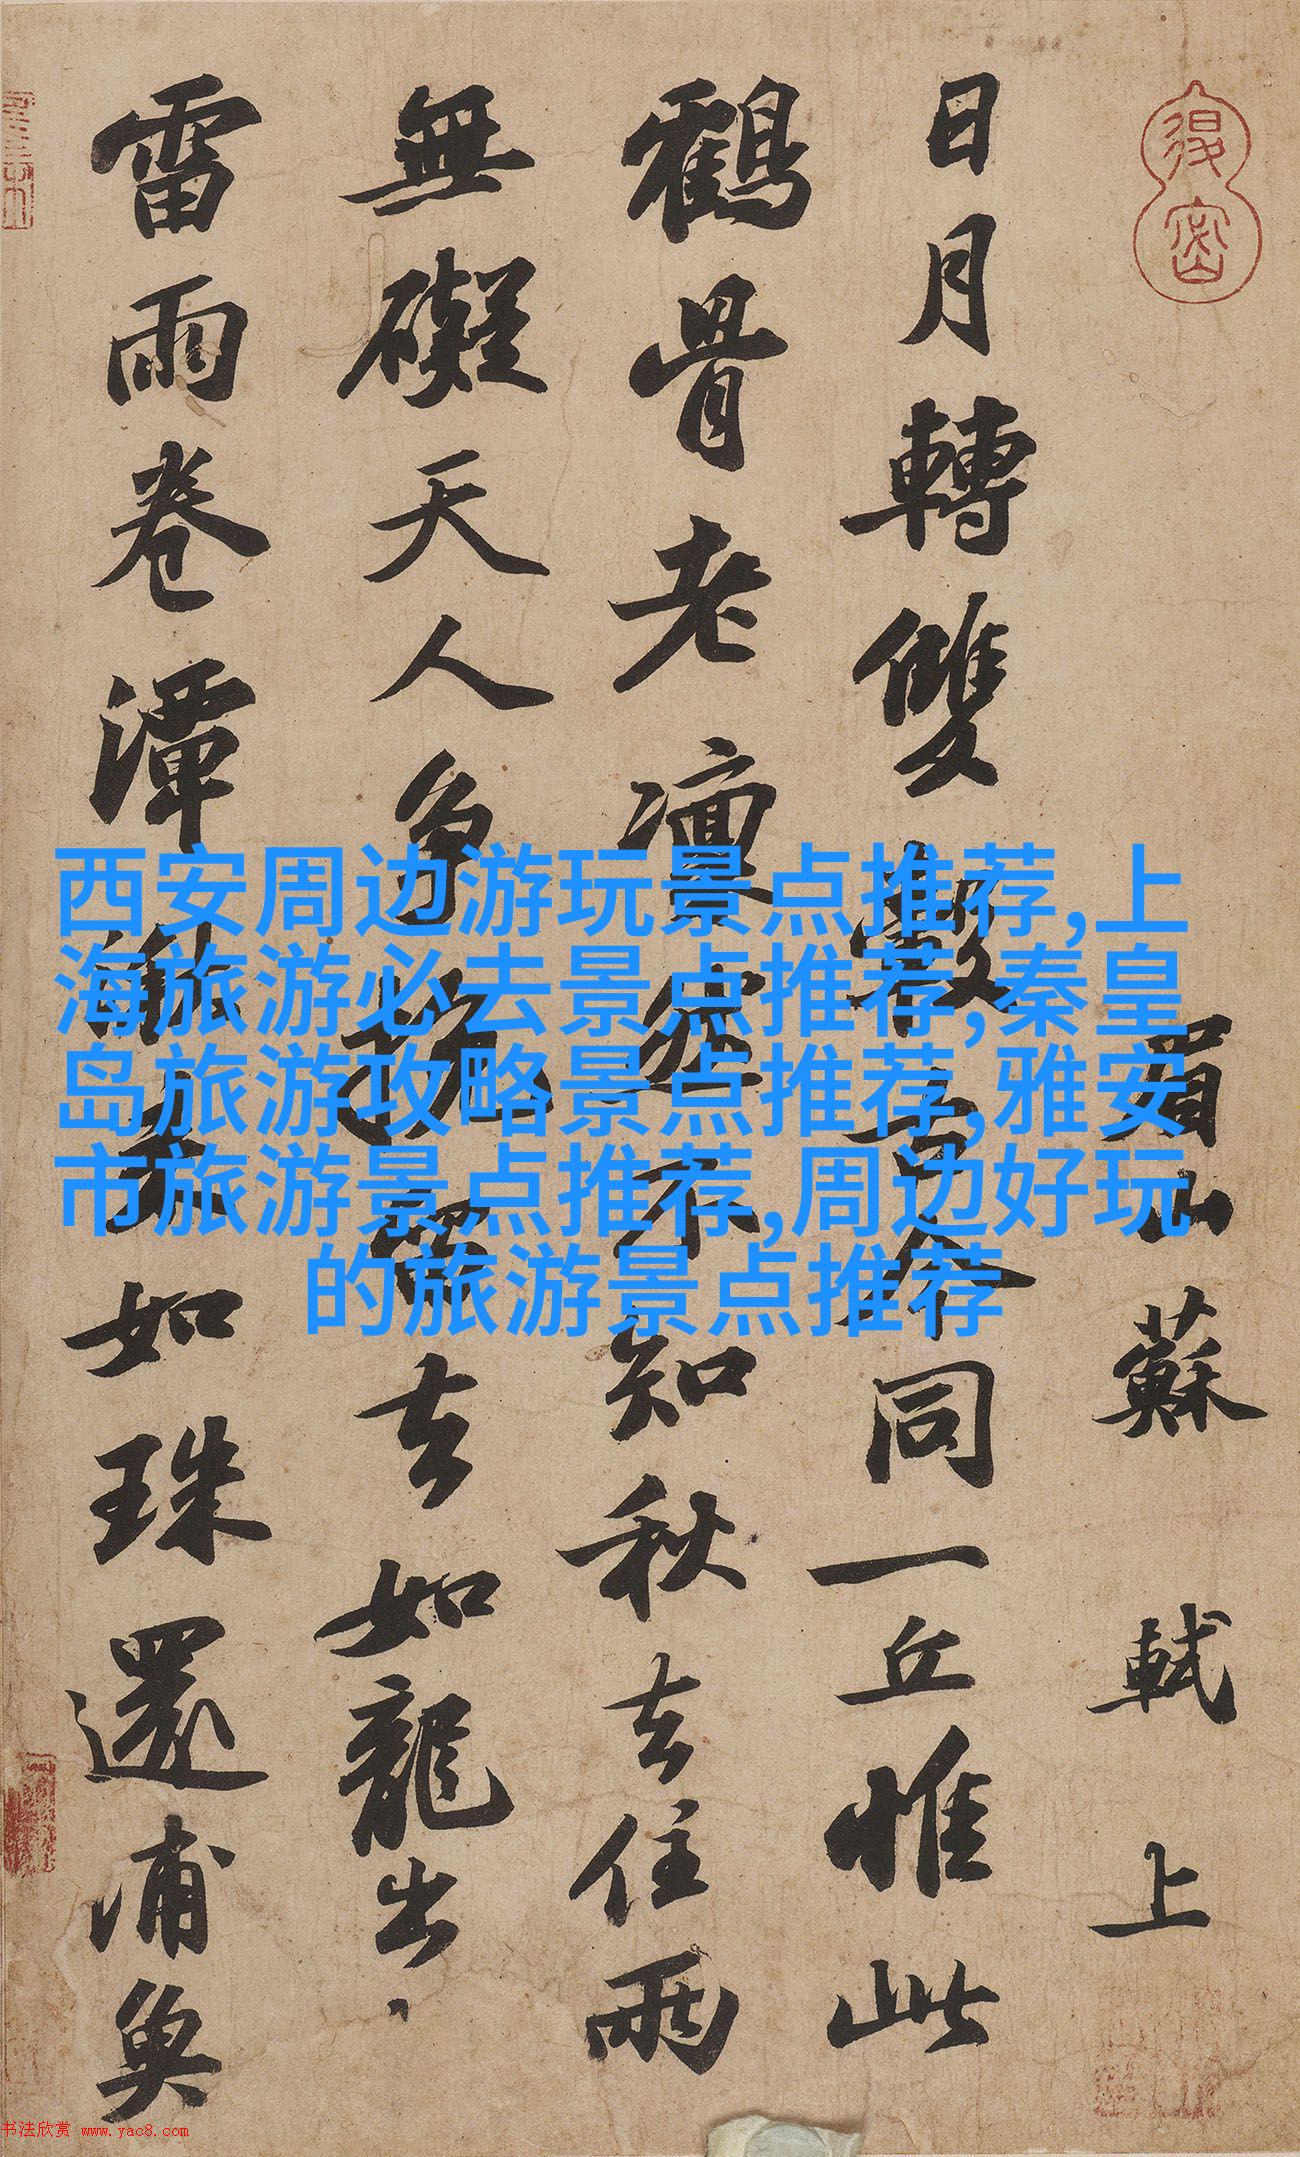 眉山蘇軾上
日月轉雙轂古今同一丘惟此
鶴骨老凜不知秋去住兩
無礙天人爭挽留去如龍出
雷雨卷潭湫来如珠還浦魚
西安周边游玩景点推荐,上
海旅游必去景点推荐,秦皇
岛旅游攻略景点推荐,雅安
市旅游景点推荐,周边好玩
的旅游景点推荐
书法欣赏 www.yac8.com